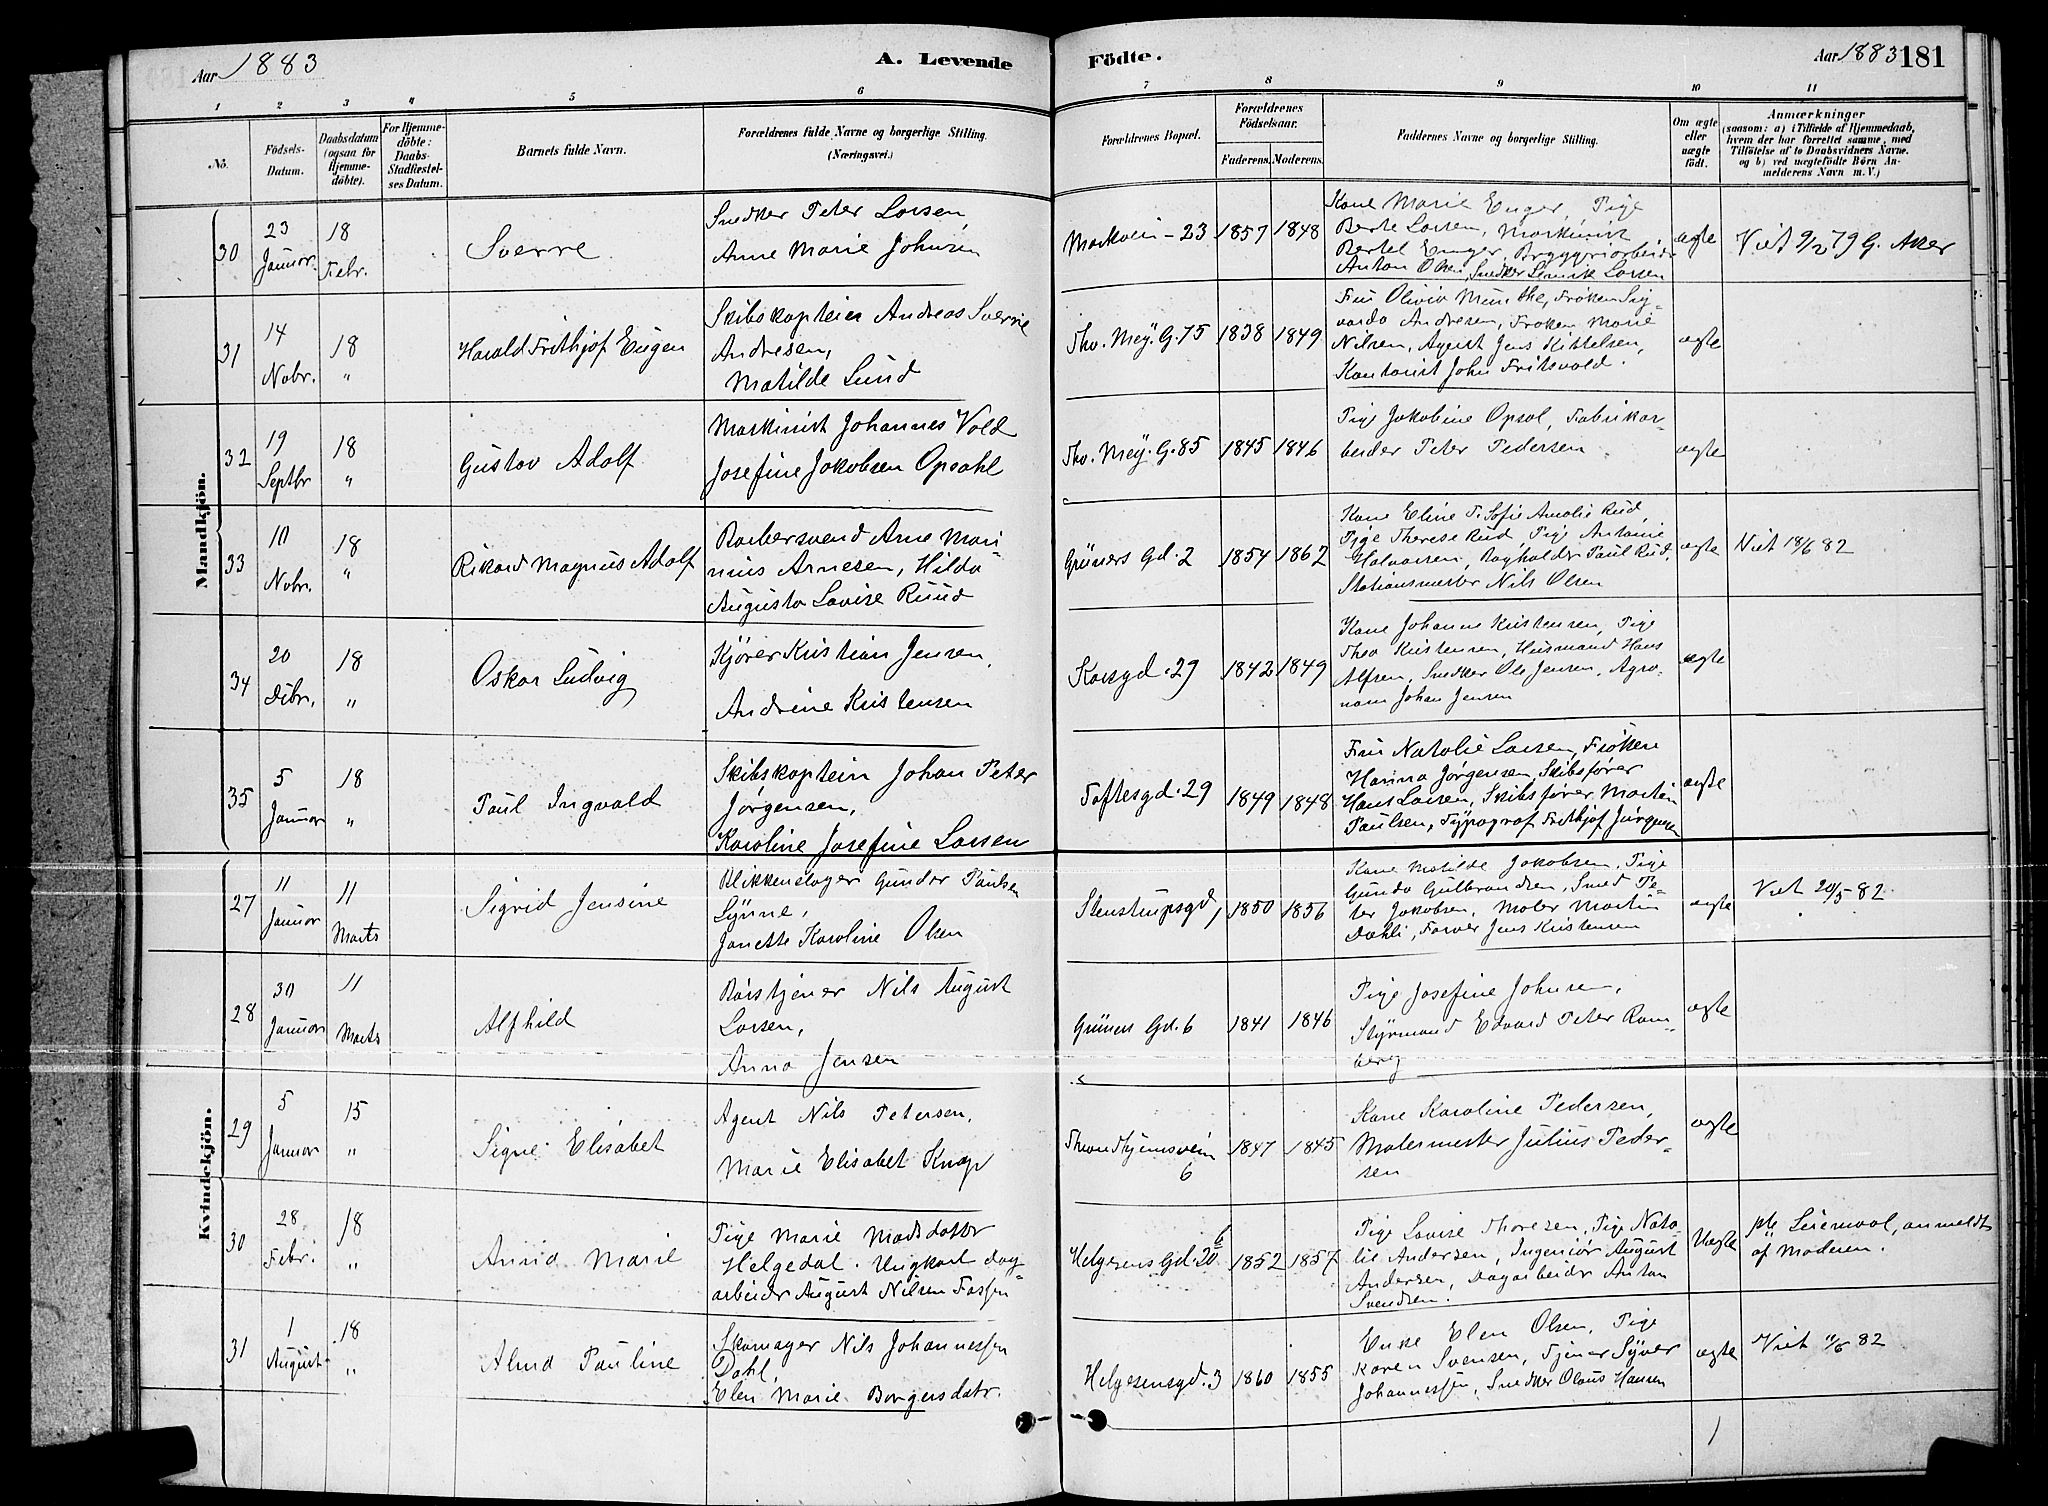 Aar 1883
A. Levende
Födte.
Aar 1883 181
1 2 3 4 5 6 7 8 9 10 11
No.
Födsels-
Datum.
Daabsdatum
(ogsaa for
Hjemme-
döbte).
For Hjemme-
döbte:
Daabs-
Stadfæstel-
ses Datum.
Barnets fulde Navn.
Forældrenes fulde Navne og borgerlige Stilling.
(Næringsvei.)
Forældrenes Bopæl.
Forældrenes
Födselsaar.
Faderens. Moderens.
Faddernes Navne og borgerlige Stilling.
Om ægte
eller
uægte
födt.
Anmærkninger
(saasom: a) i Tilfælde af Hjemmedaab,
hvem der har forrettet samme, med
Tilföielse af to Daabsvidners Navne.
og b) ved uægtefödte Börn An-
melderens Navn m. V.)
Mandkjön.
30
23
Januar.
18
Febr.
Sverre
Snedker Peter Larsen
Anne Marie Johnsen
Markvein - 23
1857
1848
Kone Marie Enger, Pige
Berte Larsen, Maskinist
Bertel Enger, Bryggeriarbeider
Anton Olsen, Snedker Larsen
ægte
Viet 9/2 79 G. Aker
31
14
Nobr.
18
"
Harald Frithjof Eugen
Skibskaptein Andreas Sverre
Andresen,
Matilde Lund
Thv. Mey. G. 75
1838
1849
Fru Olivia Munthe, Frøken Sig-
varda Andresen, Frøken Marie
Nilsen, Agent Jens Kittelsen,
Kontorist John Fritsvold.
ægte
32
19
Septbr
18
"
Gustav Adolf
Maskinist Johannes Vold
Josefine Jakobsen Opsahl
Thv. Mey. G. 85
1845
1846
Pige Jakobine Opsal, Fabrikar-
beider Peter Pedersen
ægte
33
10
Nobr.
18
"
Rikard Magnus Adolf
Barbersvend Arne Mari-
nius Arnesen, Hilda
Augusta Lovise Ruud
Grüners Gd. 2
1854
1862
Kone Eline T. Sofie Amalie Rud,
Pige Therese Rud, Pige Antonie
Halvorsen, Bogholder Paul Rud,
Stationsmester Nils Olsen
ægte
Viet 18/6 82
34
20
Debr.
18
"
Oskar Ludvig
Kjører Kristian Jensen,
Andrine Kristensen
Korsgd. 29
1842
1849
Kone Johanne Kristensen, Pige
Thea Kristensen, Husmand Hans
Alfsen, Snedker Ole Jensen, Agro-
nom Johan Jensen
ægte
35
5
Januar
18
"
Paul Ingvald
Skibskaptein Johan Peter
Jørgensen,
Karoline Josefine Larsen
Toftesgd. 29
1849
1848
Fru Natalie Larsen, Frøken
Hanna Jørgensen, Skibsfører
Hans Larsen, Skibsfører Martin
Paulsen, Typograf Frithjof Jørgensen
ægte
Kvindekjön.
27
11
Januar
11
Marts
Sigrid Jensine
Blikkenslager Gunder Paulsen
Lynne,
Janette Karoline Olsen
Stenstrupsgd,
1850
1856
Kone Matilde Jakobsen, Pige
Gunda Gulbrandsen, Smed Pe-
ter Jakobsen, Maler Martin
Dæhli, Farver Jens Kristensen
ægte
Viet 20/5 82
28
30
Januar
11
Marts
Alfhild
Nils August
Larsen,
Anna Jensen
Grüners Gd. 6
1841
1846
Pige Josefine Johnsen,
Styrmand Edvard Peter Ram-
berg
ægte
29
5
Januar
15
"
Signe Elisabet
Agent Nils Petersen,
Marie Elisabet Knap
Throndhjemsvein
6
1847
1845
Kone Karoline Pedersen,
Malermester Julius Peder-
sen
ægte
30
28
Febr.
18
"
Anna Marie
Pige Marie Madsdatter
Helgedal. Ungkarl dag
arbeider August Nilsen Fossen
Helgesens Gd. 20 b
1852
1857
Pige Lovise Thoresen, Pige Nata-
lie Andersen, Ingeniør August
Andersen, Dagarbeider Anton
Svendsen.
Uægte
Leiermaal, anmeldt
af Moderen.
31
1
August
18
"
Alma Pauline
Skomager Nils Johannessen
Dahl,
Elen Marie Borgersdatr.
Helgesensgd. 3
1860
1855
Enke Elen Olsen, Pige
Karen Svensen, Tjener Syver
Johannessen, Snedker Olaus Hansen
ægte
Viet 11/6 82
1